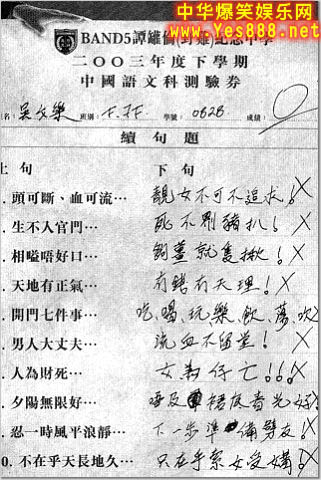 中华爆笑娱乐网
www.Yes888.net
BAND5譚雖個(討雞)紀念中學
二○○三年度下學期
中國語文科測驗券
姓名: 吳文樂 班別: F.7F. 學號: 0626 成績: 0
續句題
上句 下句
. 頭可斷、血可流… 靚女不可不追求!X
. 生不入官門… 死不剮豬扒!X
. 相嗌唔好口… 鉤薑就隻揪!X
. 天地有正氣… 有錢有天理!X
. 開門七件事… 吃、喝、玩、樂、飲、蕩、吹X
. 男人大丈夫… 流血不留堂!X
. 人為財死… 女為仔亡!!!X
. 夕陽無限好… 唔及裙底春光好!X
. 忍一時風平浪靜… 下一步準備劈友!X
0. 不在乎天長地久… 只在乎条女受媾!X